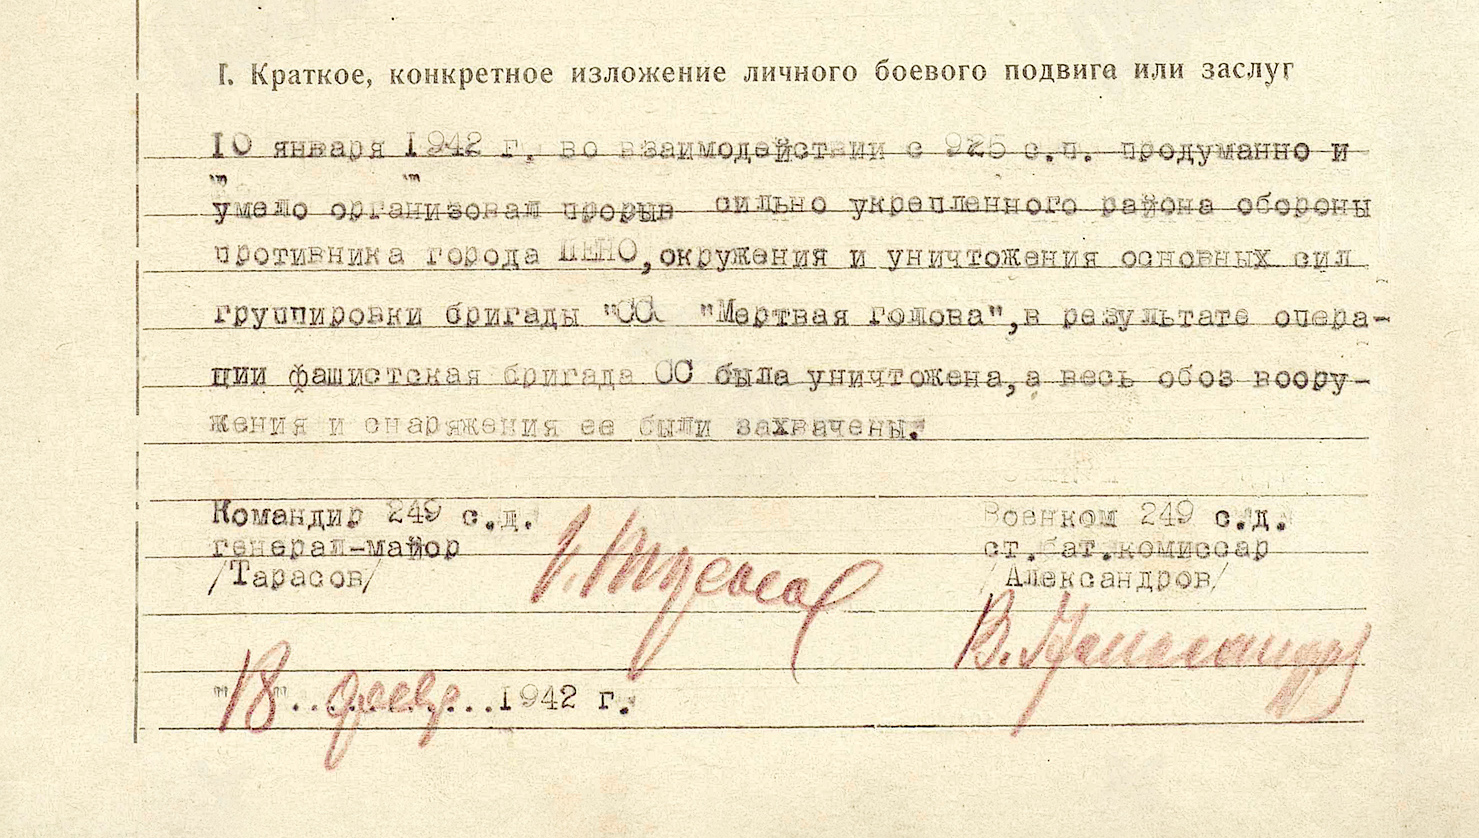 I. Краткое, конкретное изложение личного боевого подвига или заслуг
10 января 1942 г. во взаимодействии с 925 с.п. продуманно и
умело организовал прорыв сильно укрепленного района обороны
противника города ПЕНО,окружения и уничтожения основных сил
группировки бригады "СС "Мертвая голова",в результате опера-
ции фашистская бригада СС была уничтожена,а весь обоз воору-
жения и снаряжения ее были захвачены.
Командир 249 с.д.
генерал-майор
/Тарасов/
Военком 249 с.д.
ст.бат.комиссар
/Александров/
"18" февр...1942 г.